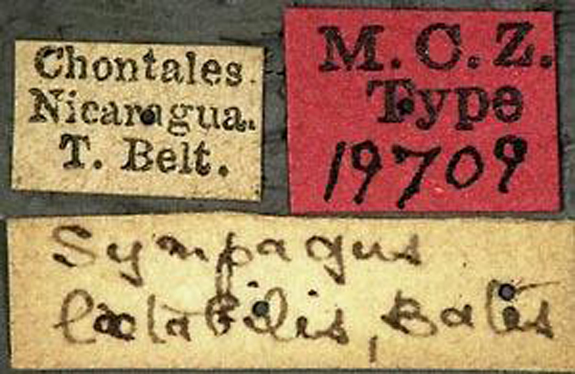 Chontales.
Nicaragua.
T. Belt.
M. C. Z.
Type
19709
Sympagus
laetabilis, Bates